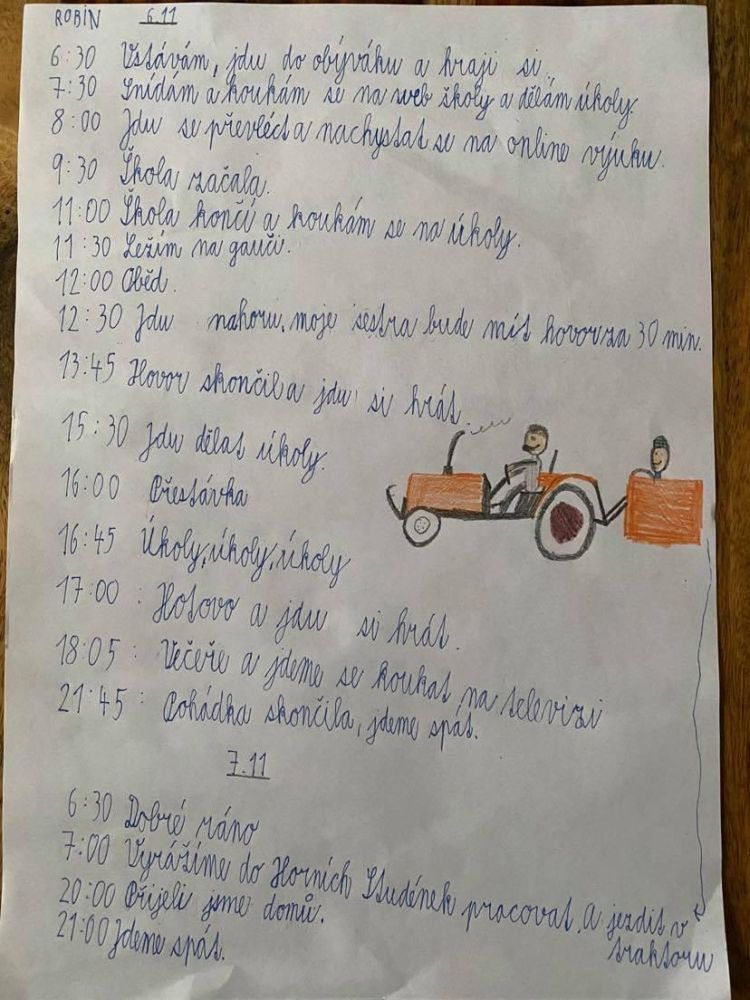 ROBIN 6.11
6:30 Vstávám, jdu do obýváku a hraji si.
7:30 Snídám a koukám se na web školy a dělám úkoly.
8:00 Jdu se převléct a nachystat se na online výuku.
9:30 Škola začala.
11:00 Škola končí a koukám se na úkoly.
11:30 Ležím na gauči.
12:00 Oběd.
12:30 Jdu nahoru, moje sestra bude mít hovor za 30 min.
13:45 Hovor skončil a jdu si hrát.
15:30 Jdu dělat úkoly.
16:00 Přestávka
16:45 Úkoly, úkoly, úkoly
17:00 : Hotovo a jdu si hrát.
18:05 : Večeře a jdeme se koukat na televizi
21:45 : Pohádka skončila, jdeme spát.
7.11
6:30 Dobré ráno
7:00 Vyrážíme do Horních Studének pracovat. A jezdit v
traktoru
20:00 Přijeli jsme domů.
21:00 Jdeme spát.